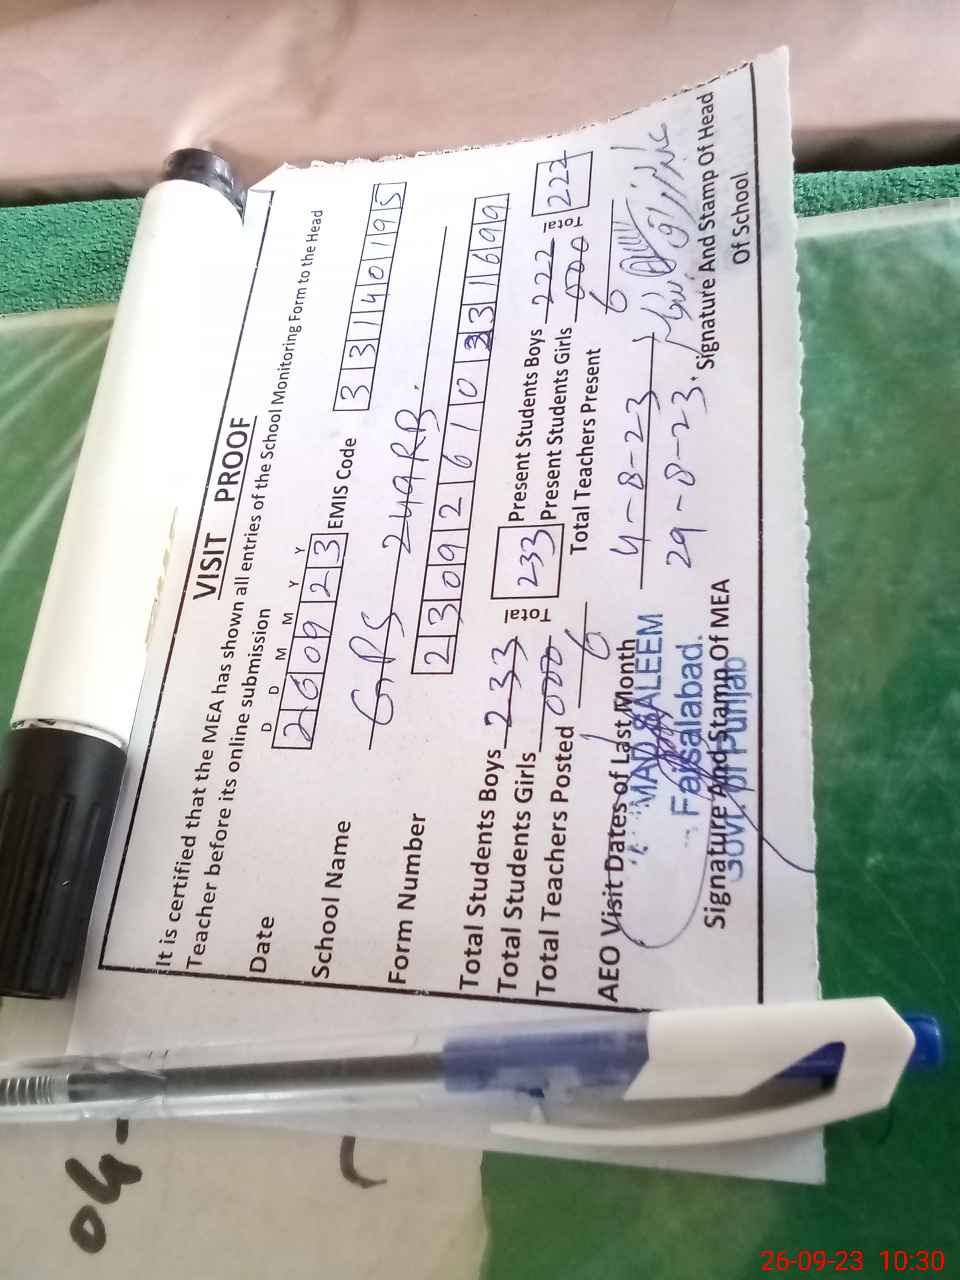 VISIT PROOF
It is certified that the MEA has shown all entries of the School Monitoring Form to the Head
Teacher before its online submission
D D M M Y Y
Date 260923 EMIS Code 33140195
School Name GPS 249RB.
Form Number 23092610331699
Total Students Boys 233 Total 233 Present Students Boys 222 Total 222
Total Students Girls 000 Present Students Girls 000
Total Teachers Posted 6 Total Teachers Present 6
AEO Visit Dates of Last Month 4-8-23
29-8-23.
SALEEM
Faisalabad.
Govt. of Punjab
Signature And Stamp Of MEA
Signature And Stamp Of Head
Of School
04-
26-09-23 10:30